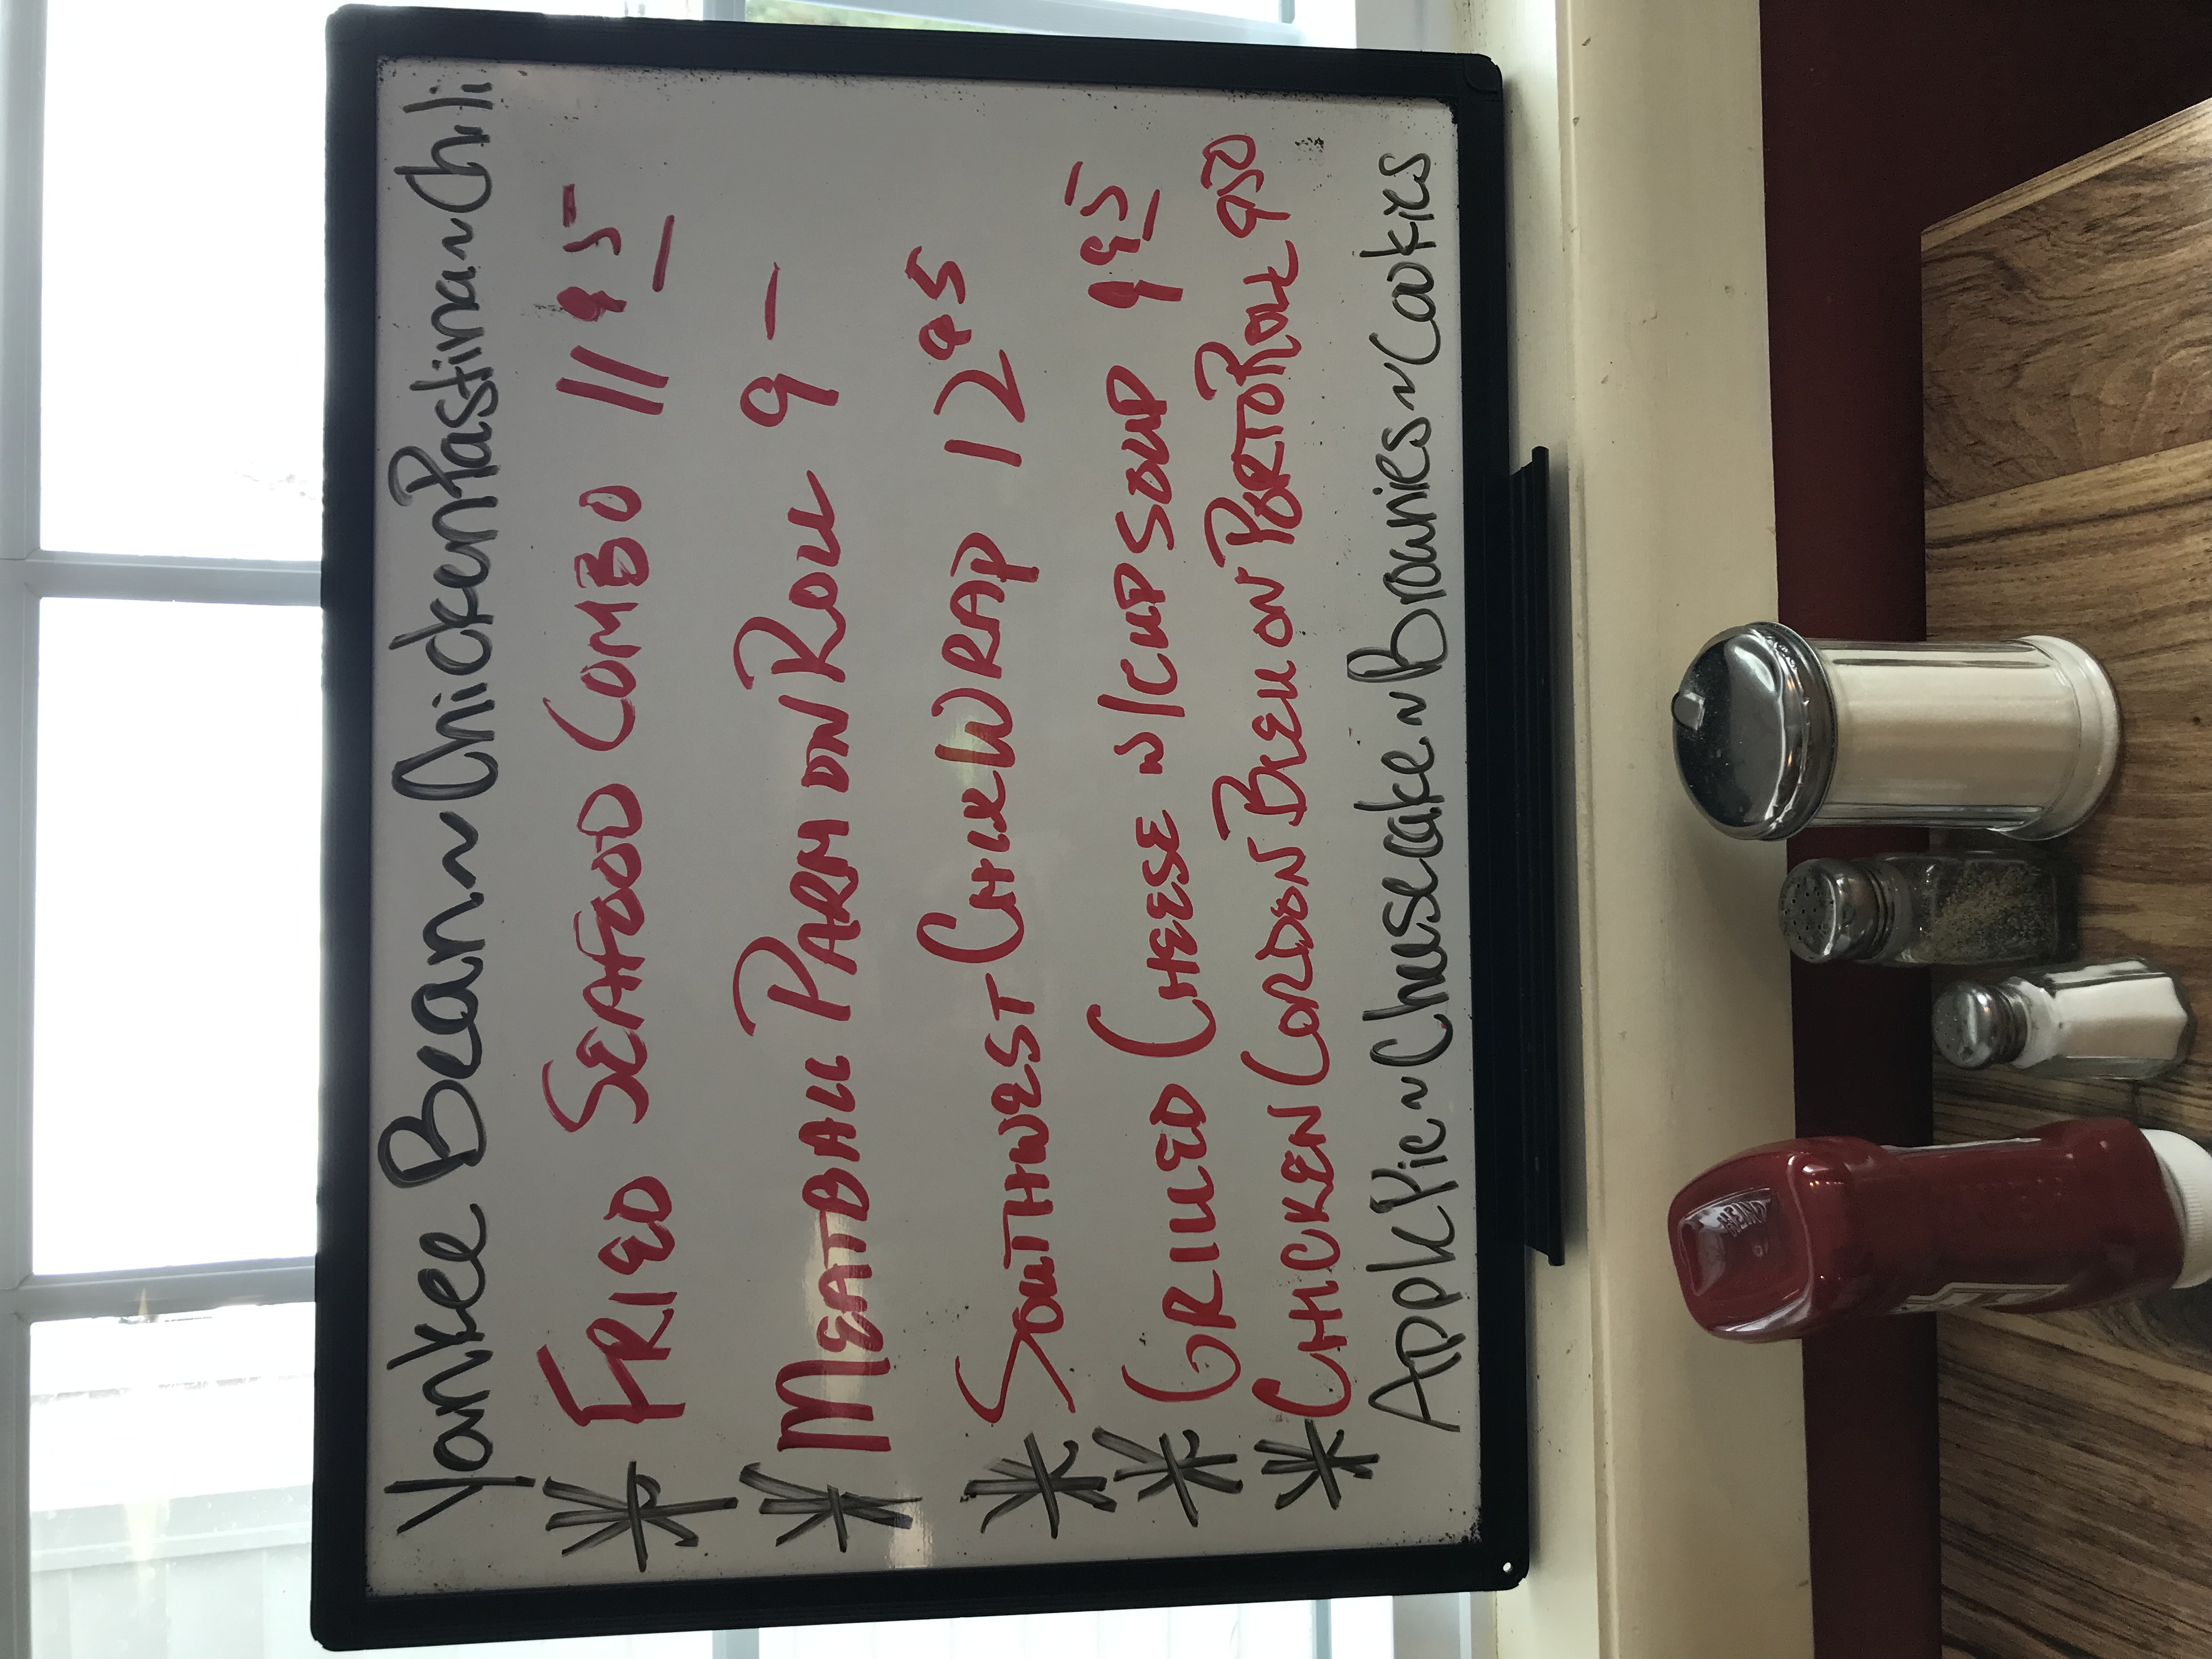 Yankee Bean ~ Chicken Pastina ~ Chili
* FRIED SEAFOOD COMBO 11 95
* MEATBALL PARM ON ROLL 9 —
* SOUTHWEST CHIK WRAP 12 95
* GRILLED CHEESE W/CUP SOUP 9 95
* CHICKEN CORDON BLEU ON PORTO ROLL 9 50
Apple Pie ~ Cheesecake ~ Brownies ~ Cookies
HEINZ